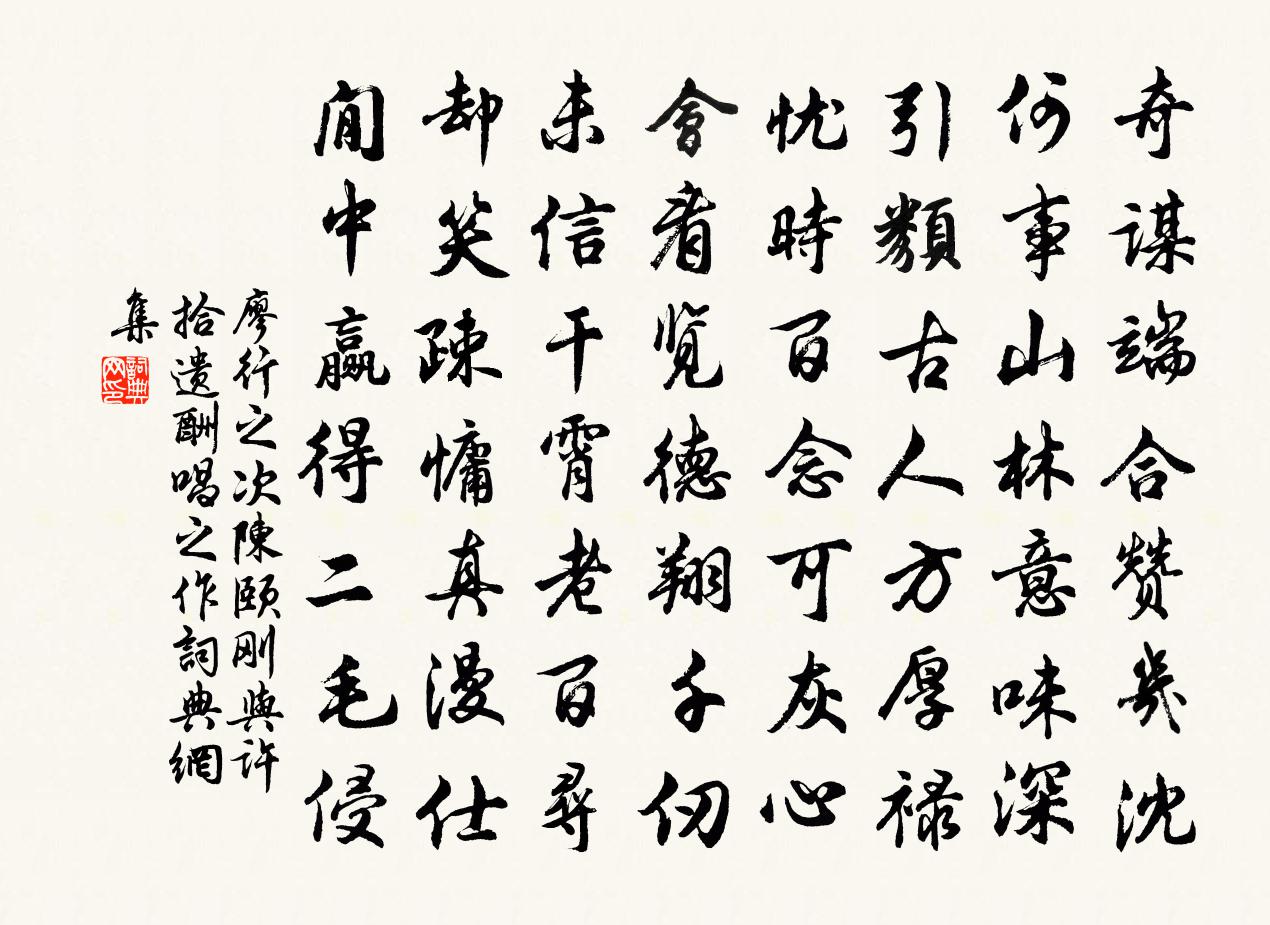 奇謀端合贊幾沈
何事山林意味深
引類古人方厚祿
忧時百念可灰心
會看覽德翔千仞
未信干霄老百尋
却笑疎慵真漫仕
閒中贏得二毛侵
廖行之次陳頤刚與許
拾遺酬唱之作詞典網
集
詞典网印